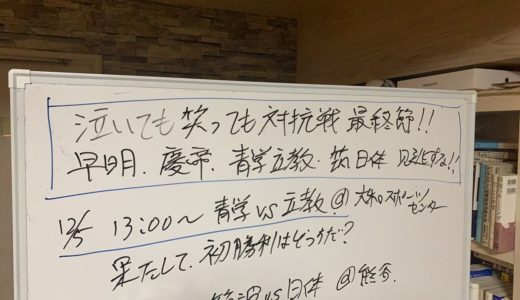 泣いても笑っても対抗戦 最終節!!
早明. 慶帝. 青学立教. 筑日体 見逃すな!!
12/5 13:00〜 青学 vs 立教. @ 大和スポーツセンター
果たして、初勝利はどっちだ?
筑波 vs 日体 @熊谷.